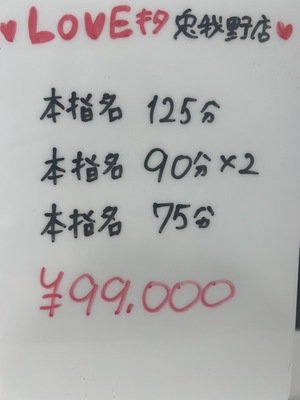 ♥LOVEキタ 兎我野店♥
本指名 125分
本指名 90分×2
本指名 75分
¥99.000